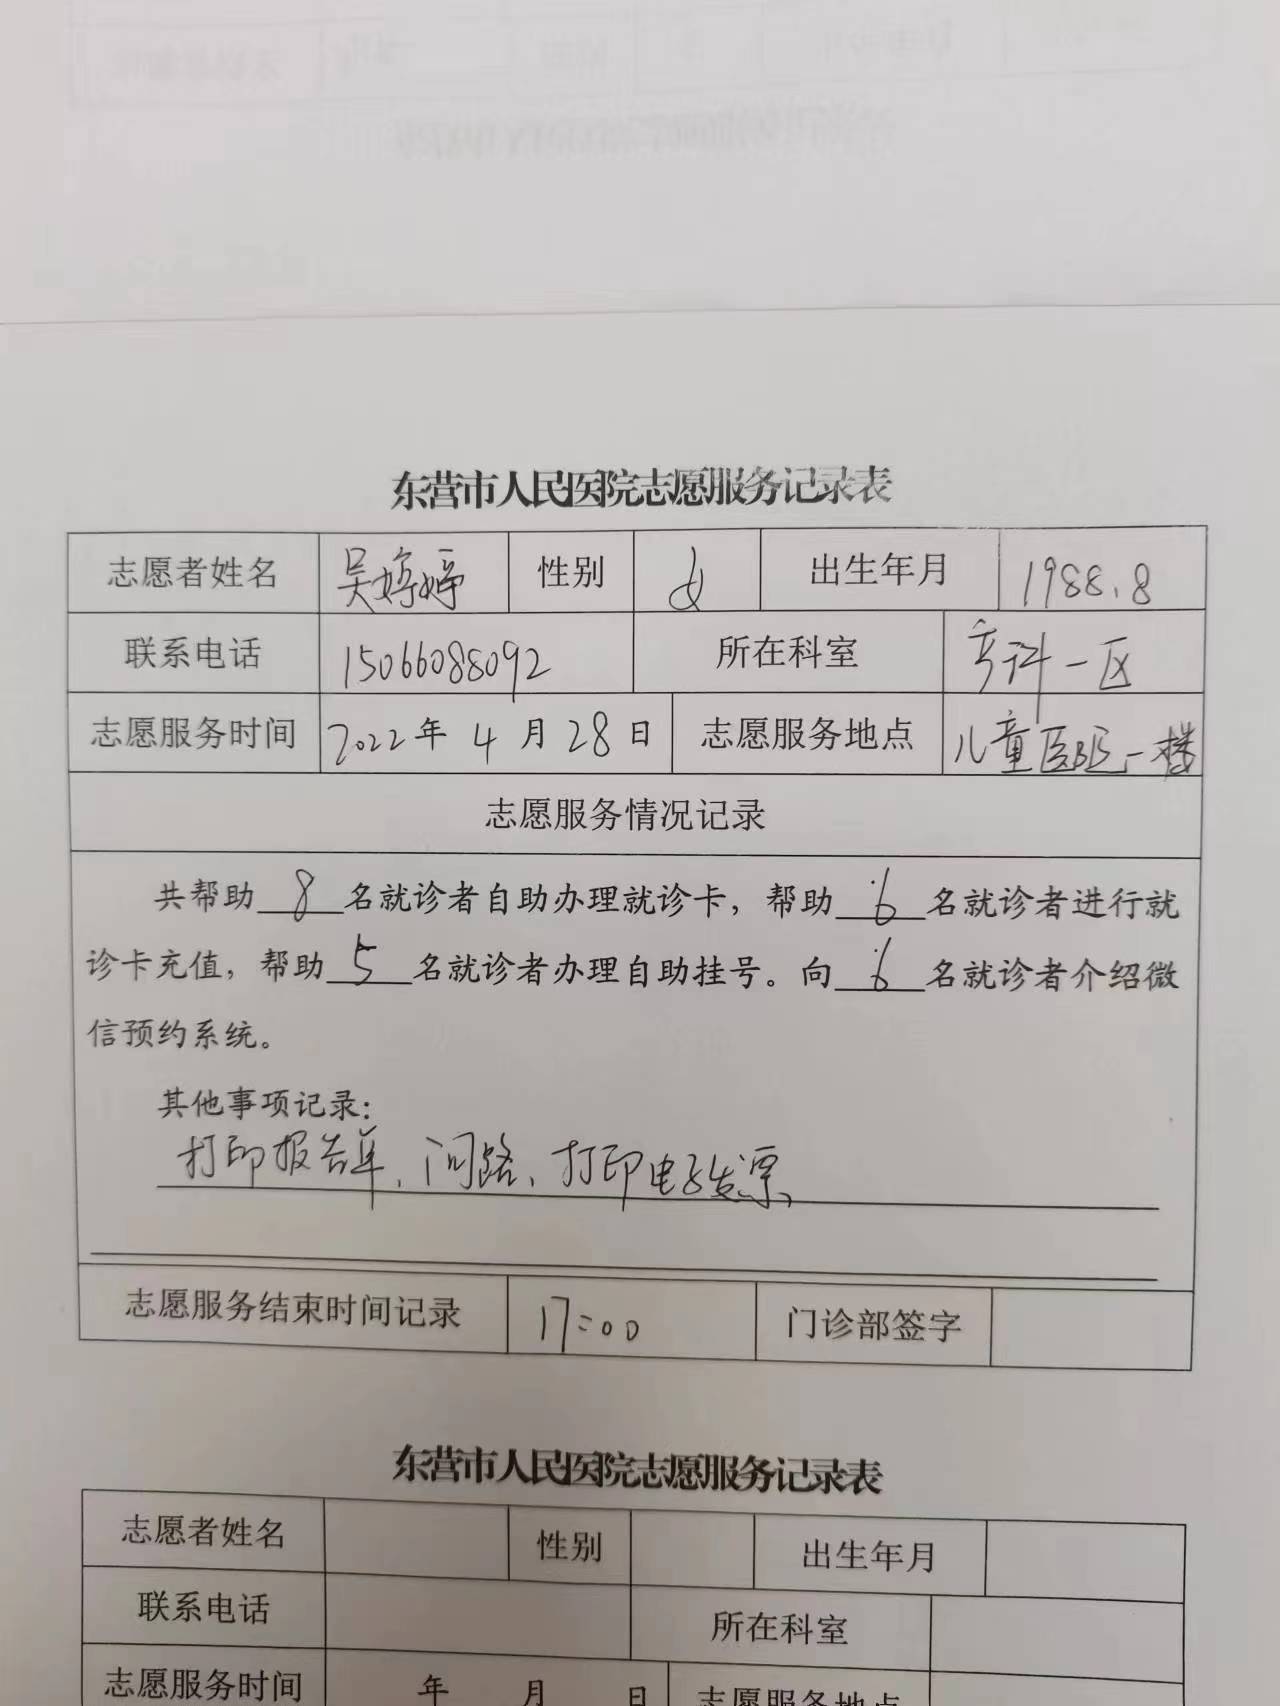 东营市人民医院志愿服务记录表
志愿者姓名 吴婷婷 性别 女 出生年月 1988.8
联系电话 15066088092 所在科室 产科一区
志愿服务时间 2022年4月28日 志愿服务地点 儿童医院一楼
志愿服务情况记录
共帮助8名就诊者自助办理就诊卡，帮助6名就诊者进行就
诊卡充值，帮助5名就诊者办理自助挂号。向6名就诊者介绍微
信预约系统。
其他事项记录：
打印报告单、问路、打印电子发票、
志愿服务结束时间记录 17:00 门诊部签字
东营市人民医院志愿服务记录表
志愿者姓名 性别 出生年月
联系电话 所在科室
志愿服务时间 年 月 日 志愿服务地点